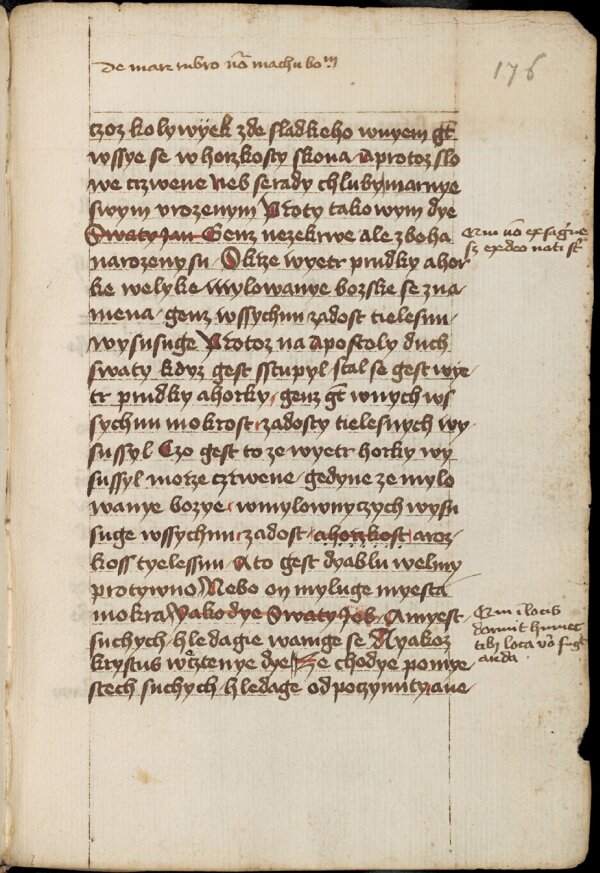 De mare rubro
176
czoz kolywyek zde sladkeho wnyem gt
wssye se w horzkosty skona Aprotoz slo
we czrzwene Neb se rady chluby marnye
swym vrozenym Proty takowym dye
Swaty Jan Genz nezekrwe ale z boha
narozeny su Oktze wyetr prudky ahor
ke welyke mylowanye bozske se zna
mena genz wssychnu zadost tielesnu
wysusuge Protoz na Aposstoly duch
swaty kdyz gest sstupyl stal se gest wye
tr prudky ahorky genz gt wnych ws
sychnu mokrost zadosty tielesnych wy
sussyl Czo gest to ze wyetr horky wy
sussyl morze czrwene gedyne ze mylo
wanye bozye wmylownyczych wysu
suge wssychnu zadost ahorzkost aroz
koss tyelessnu Ato gest dyablu welmy
protywno Nebo on myluge myesta
mokra Yakodye Swaty Job Amyest
suchych hledagie waruge se Ayakoz
krystus wcztenye dye Ze chodye pomye
stech suchych hledage odpoczynuty ane
Qui non ex sanguine
sz ex deo nati st
Qui i locis
dormit humectis